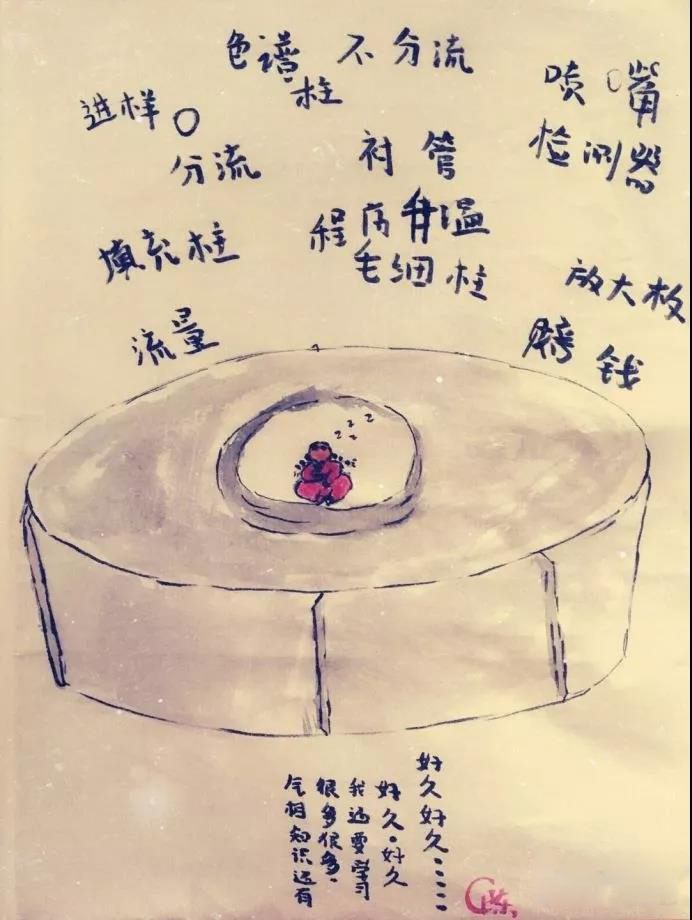 色谱柱 不分流
进样口
喷嘴
分流
衬管
检测器
填充柱
程序升温
毛细柱
放大板
流量
赔钱
zzzz
气相知识还有
很多很多。
我还要学习
好久。好久
好久好久……
陈